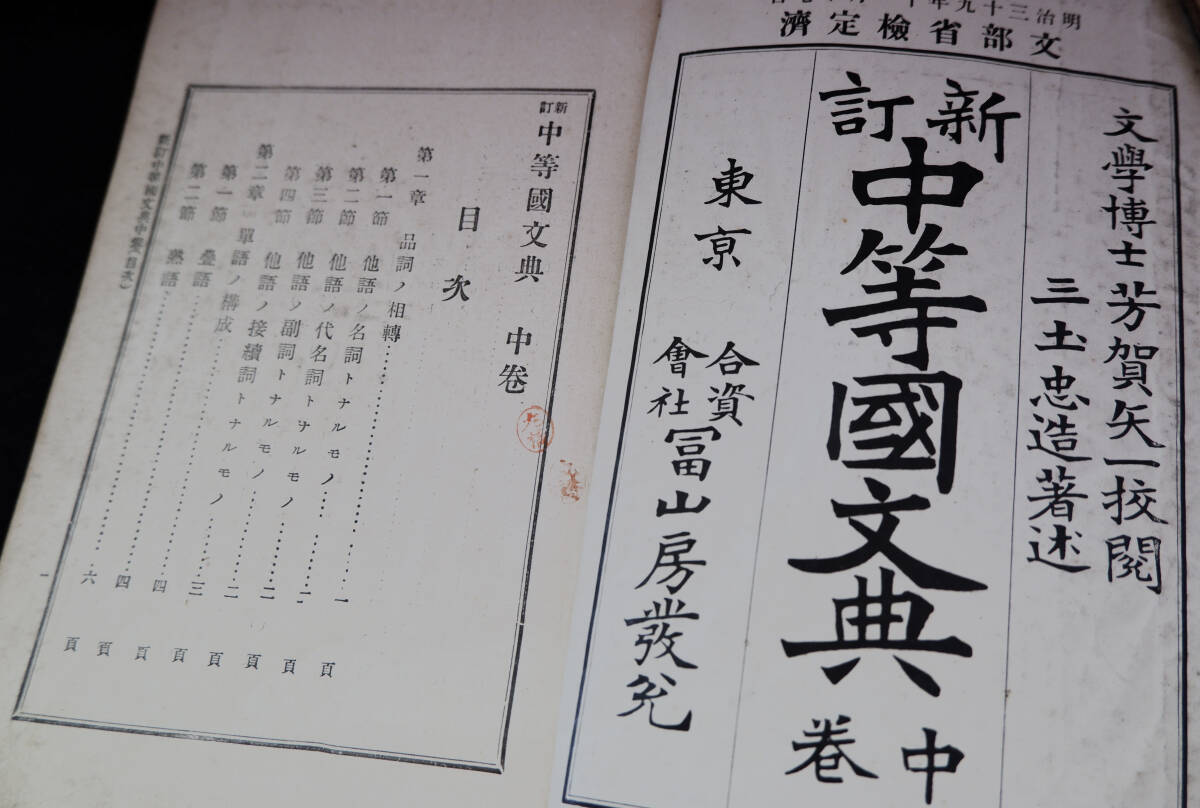 明治三十九年十
文部省檢定濟
文學博士芳賀矢一挍閱
三土忠造著述
新訂中等國文典 中卷
東京 合資會社冨山房發兌
新訂中等國文典 中卷
目次
第一章 品詞ノ相轉……一頁
第一節 他語ノ名詞トナルモノ……一頁
第二節 他語ノ代名詞トナルモノ……二頁
第三節 他語ノ副詞トナルモノ……二頁
第四節 他語ノ接續詞トナルモノ……三頁
第二章 單語ノ構成……四頁
第一節 疊語……四頁
第二節 熟語……六頁
新訂中等國文典中卷(目次)
一